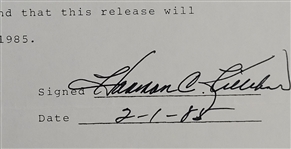 nd that this release will
1985.
Signed Harmon C. Killebrew
Date 2-1-85